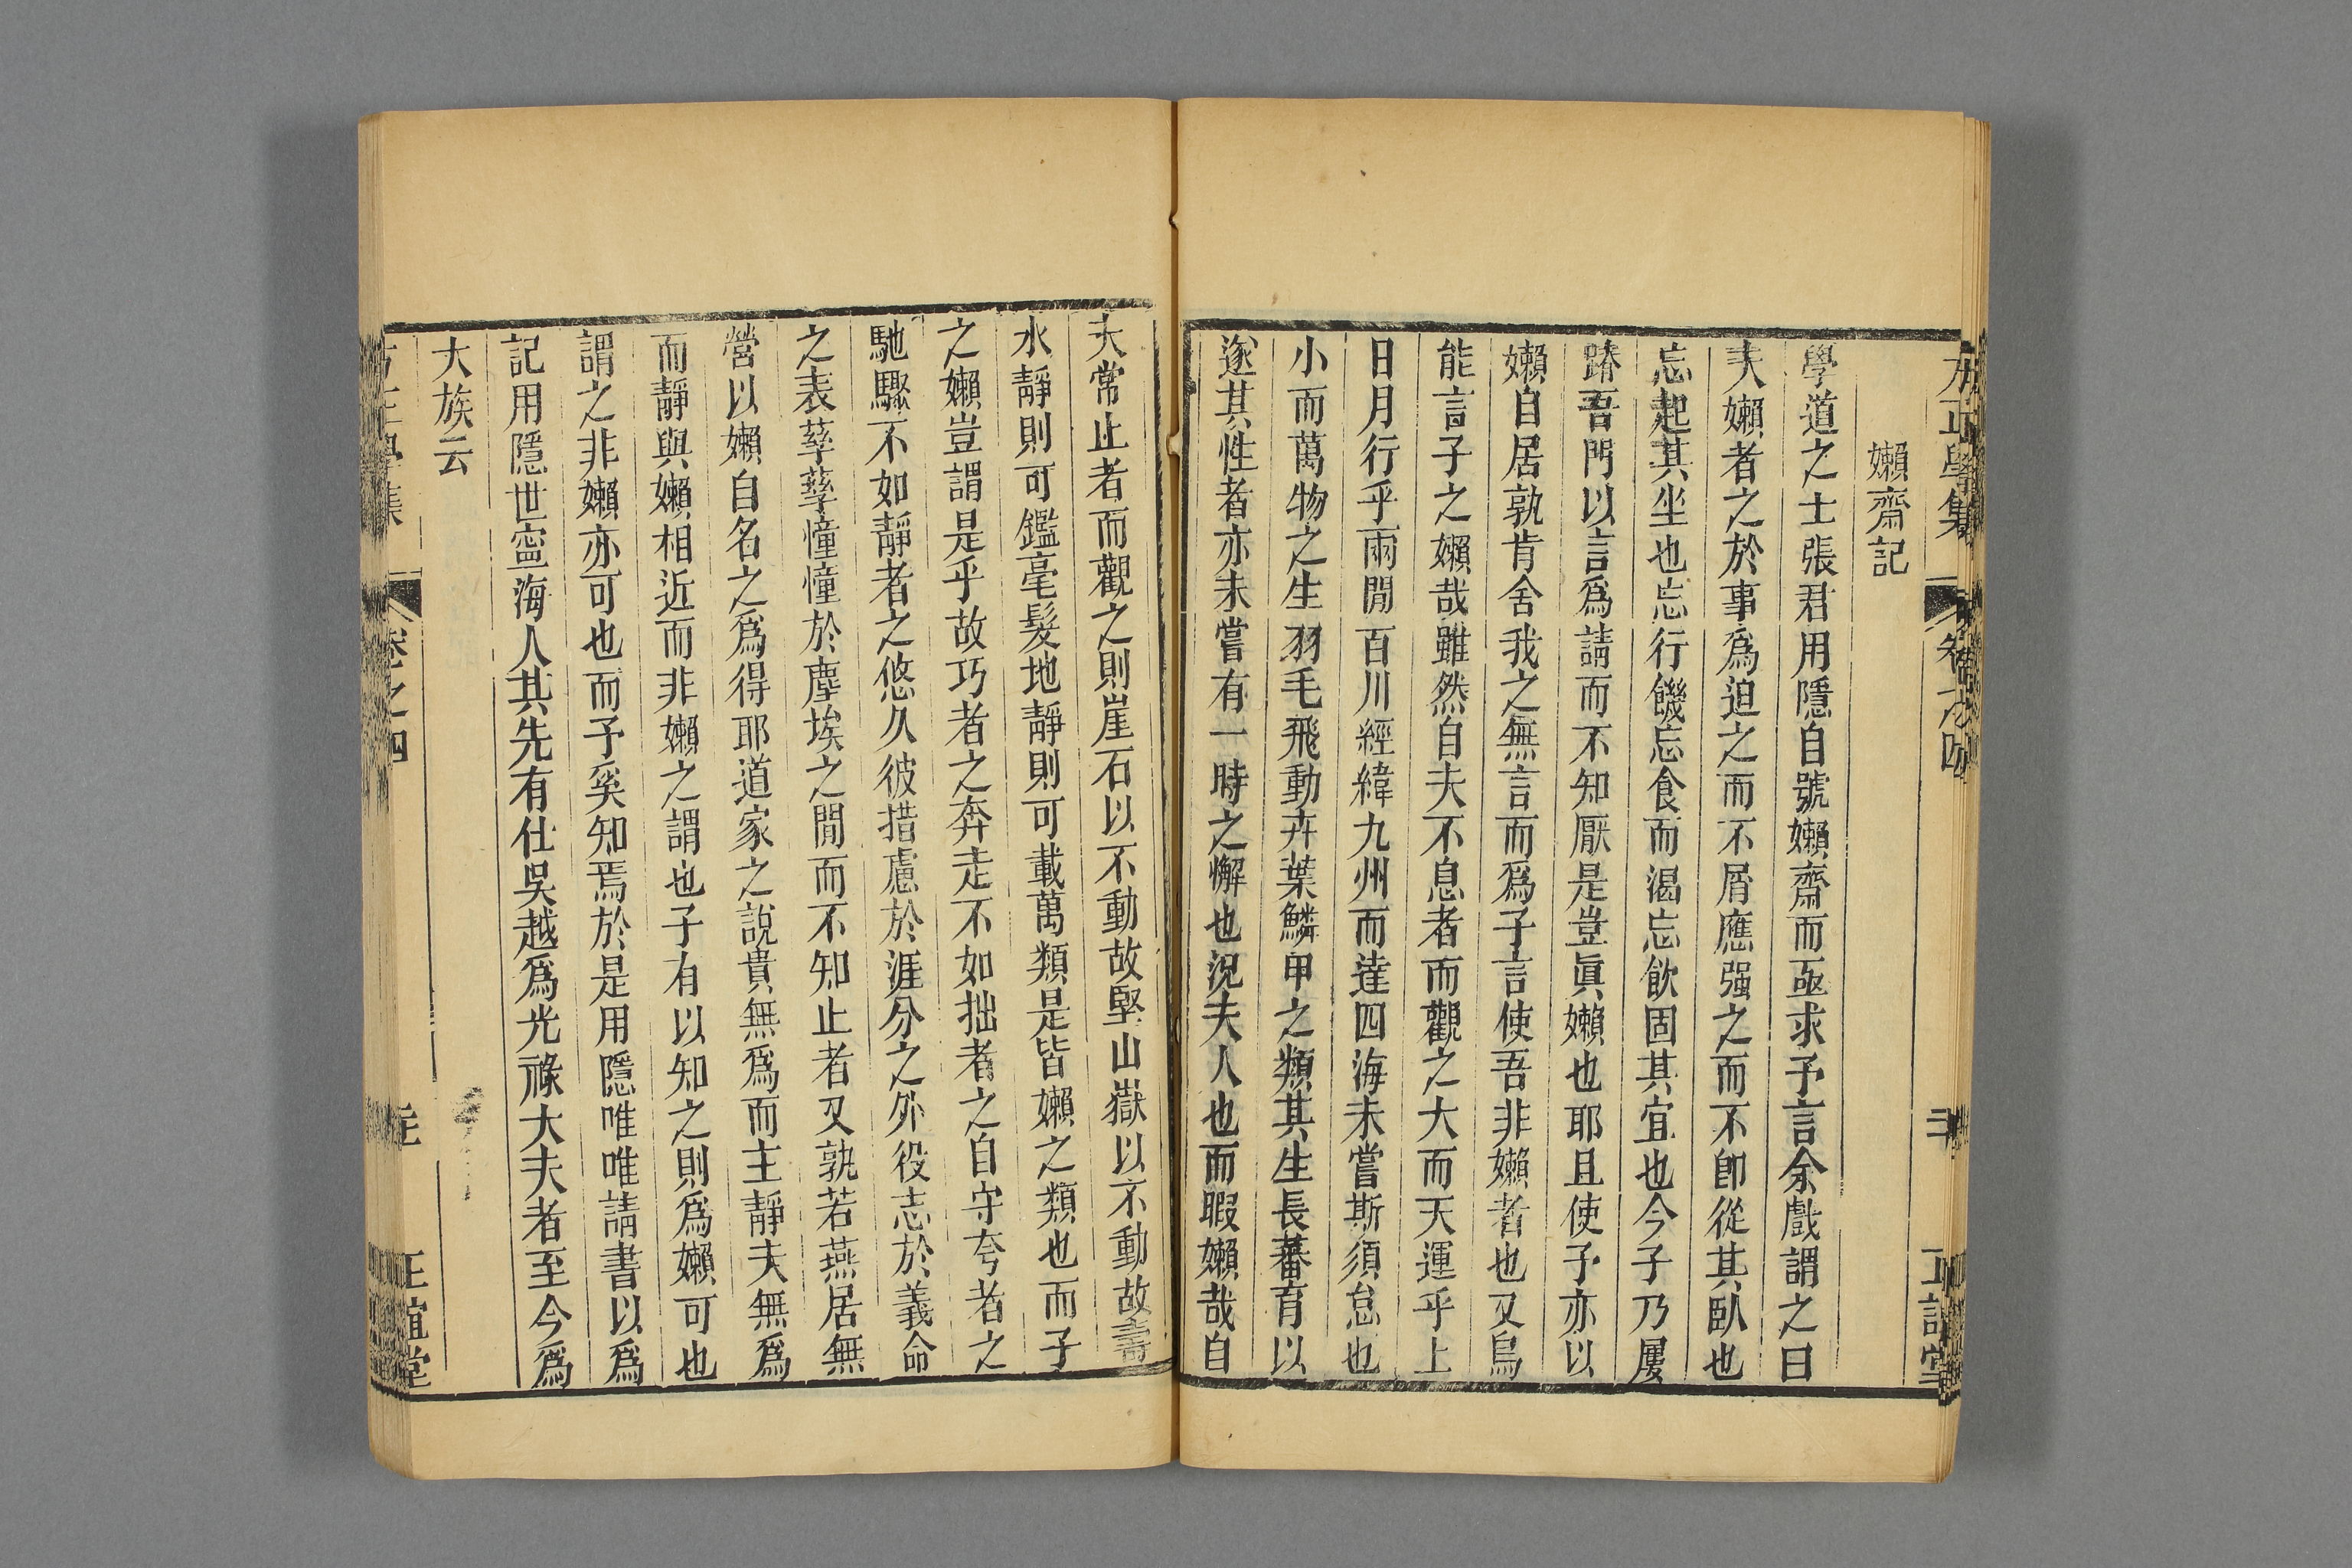 方正學集
卷之四
正誼堂
嬾齋記
學道之士張君用隱自號嬾齋而亟求予言余戲謂之曰
夫嬾者之於事爲迫之而不屑應强之而不卽從其臥也
忘起其坐也忘行饑忘食而渴忘飲固其宜也今子乃屢
蹐吾門以言爲請而不知厭是豈眞嬾也耶且使予亦以
嬾自居孰肯舍我之無言而爲子言使吾非嬾者也又烏
能言子之嬾哉雖然自夫不息者而觀之大而天運乎上
日月行乎兩閒百川經緯九州而達四海未嘗斯須怠也
小而萬物之生羽毛飛動卉葉鱗甲之類其生長蕃育以
遂其性者亦未嘗有一時之懈也況夫人也而暇嬾哉自
夫常止者而觀之則崖石以不動故堅山嶽以不動故壽
水靜則可鑑毫髮地靜則可載萬類是皆嬾之類也而子
之嬾豈謂是乎故巧者之奔走不如拙者之自守夸者之
馳驟不如靜者之悠久彼措慮於涯分之外役志於義命
之表孳孳憧憧於塵埃之閒而不知止者又孰若燕居無
營以嬾自名之爲得耶道家之說貴無爲而主靜夫無爲
而靜與嬾相近而非嬾之謂也子有以知之則爲嬾可也
謂之非嬾亦可也而予奚知焉於是用隱唯唯請書以爲
記用隱世寍海人其先有仕吳越爲光祿大夫者至今爲
大族云
卷之四
正誼堂